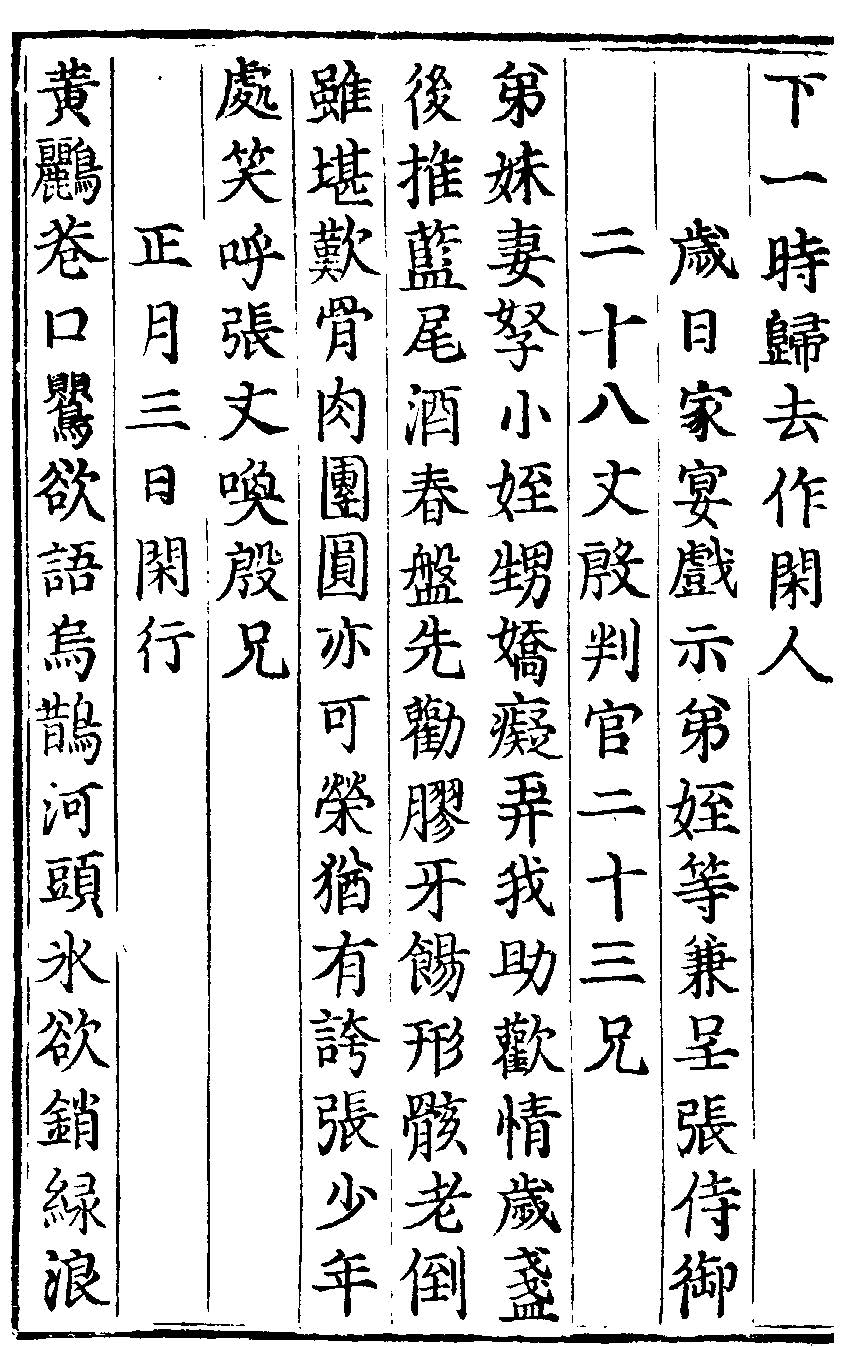 下一時歸去作閑人
歲日家宴戲示弟姪等兼呈張侍御
二十八丈殷判官二十三兄
弟妹妻孥小姪甥嬌癡弄我助歡情歲盞
後推藍尾酒春盤先勸膠牙餳形骸老倒
雖堪歎骨肉團圓亦可榮猶有誇張少年
處笑呼張丈喚殷兄
正月三日閑行
黃鸝巷口鸎欲語烏鵲河頭氷欲銷綠浪